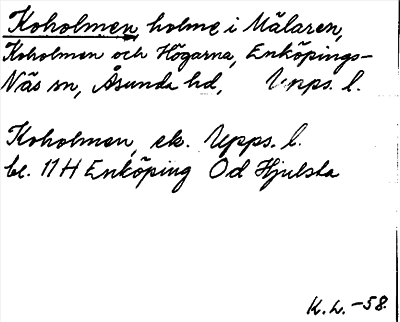 Koholmen, holme i Mälaren,
Koholmen och Högarna, Enköpings-
Näs sn, Åsunda hd, Upps. l.
Koholmen, ek. Upps. l.
bl. 11 H Enköping Od Hjulsta
K.L.-58.